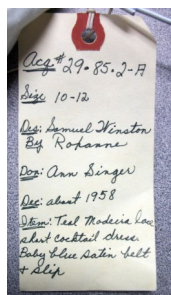 Acq# 29.85.2-A
Size 10-12
Des: Samuel Winston
By Roxanne
Don: Ann Singer
Dec: about 1958
Item: Teal Madeira lace
short cocktail dress
Baby blue satin belt
& slip